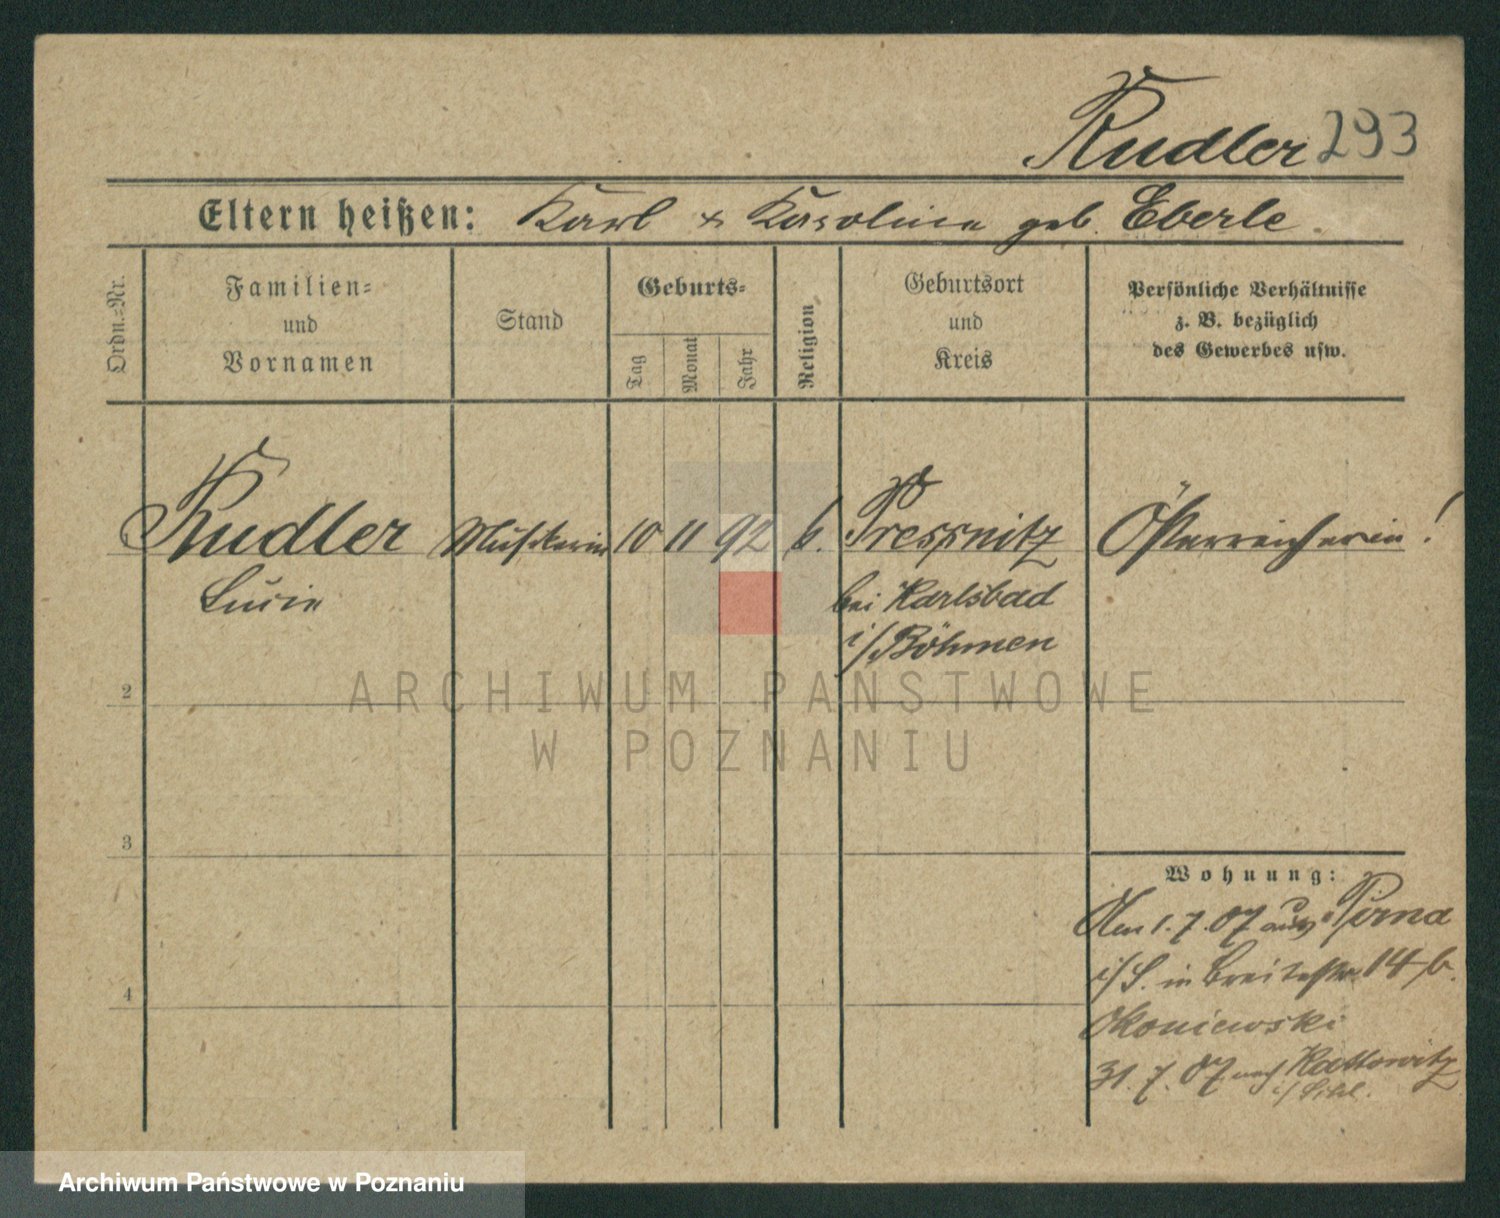 Rudler 293
Eltern heißen: Karl & Karoline geb. Eberle.
Ordn.-Nr.
Familien-
und
Vornamen
Stand
Geburts-
Tag
Monat
Jahr
Religion
Geburtsort
und
Kreis
Persönliche Verhältnisse
z. B. bezüglich
des Gewerbes usw.
Rudler Musikerin 10 11 92 k. Pressnitz Österreicherin!
Lucie bei Karlsbad
i/Böhmen
2
3
4
Wohnung:
Am 1.7.07 aus Pirna
i/S. in Breitestr. 14 b.
Okoniewski
31.7.07 nach Kattowitz
i/Schl.
ARCHIWUM PANSTWOWE
W POZNANIU
Archiwum Państwowe w Poznaniu